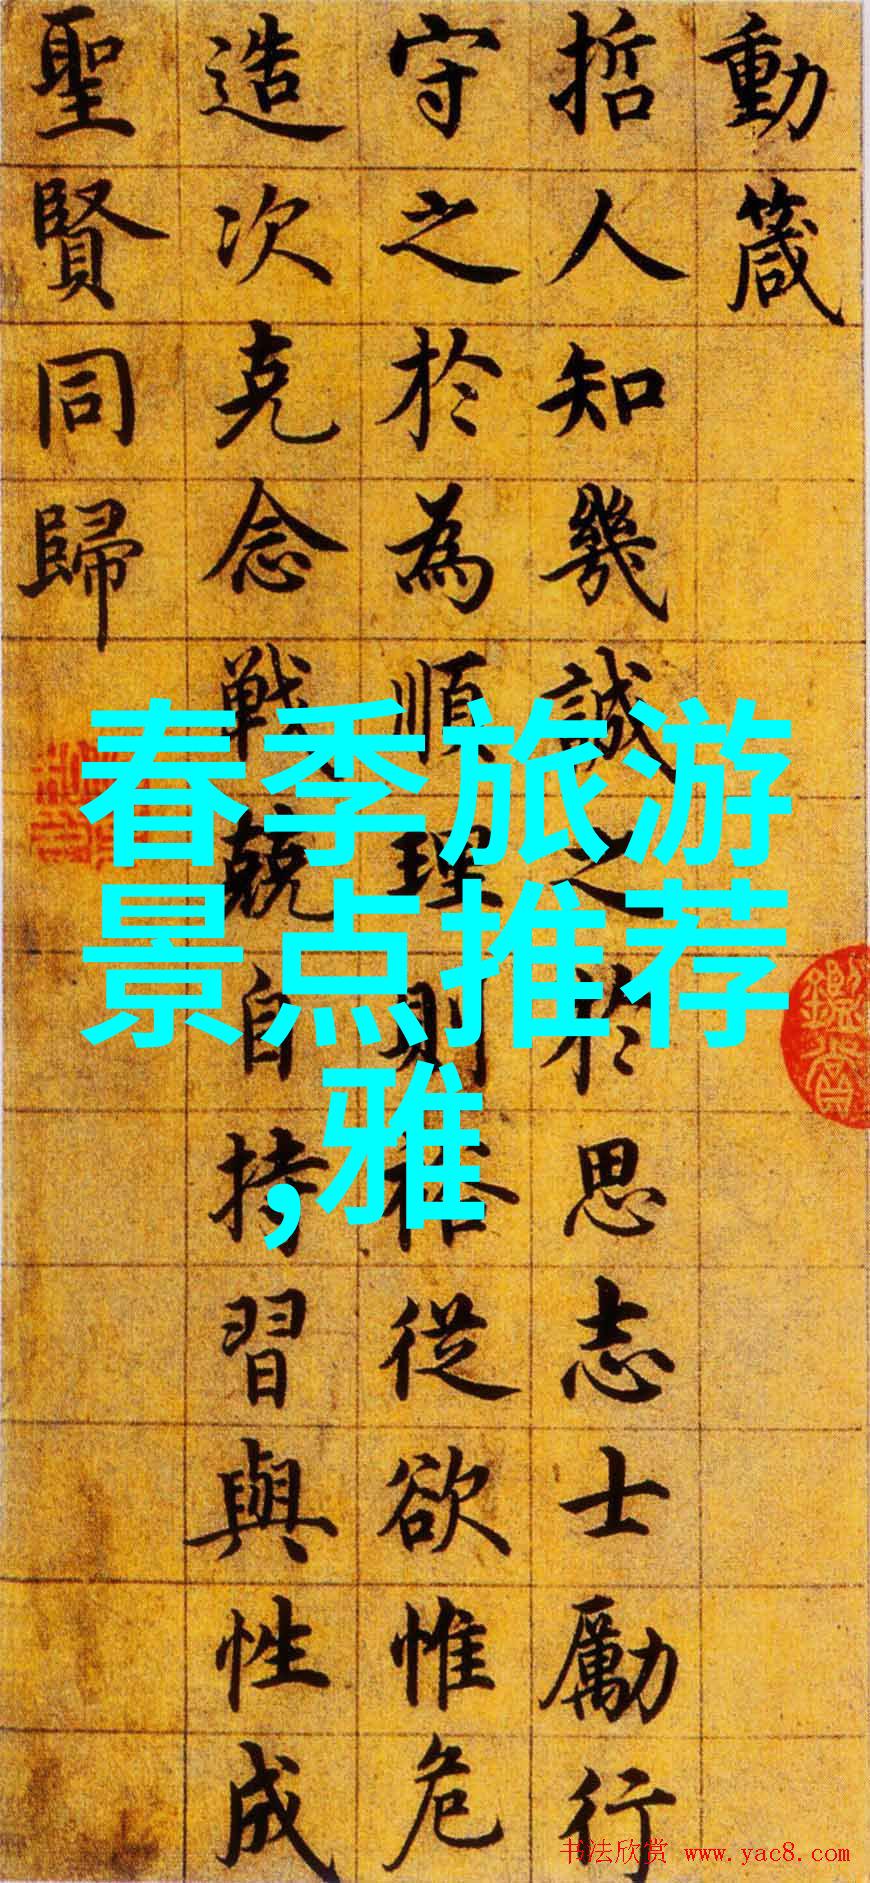 動箴
哲人知幾誠之於思志士勵行
守之於為順理則裕從欲惟危
造次克念戰兢自持習與性成
聖賢同歸
春季旅游
景点推荐
,雅
书法欣赏 www.yac8.com